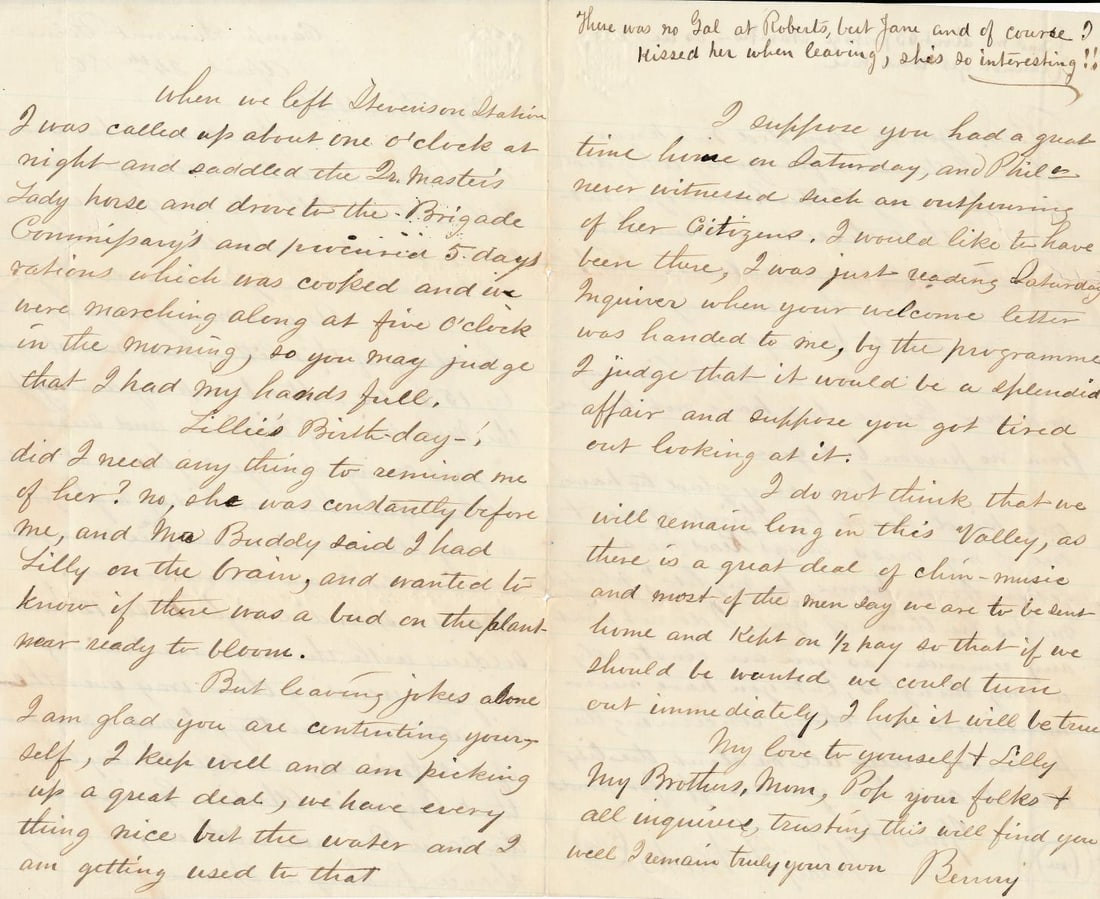 When we left Stevenson Station
I was called up about one o'clock at
night and saddled the Qr. Master's
Lady horse and drove to the Brigade
Commissary's and procured 5. days
rations which was cooked and we
were marching along at five O'clock
in the morning, so you may judge
that I had my hands full.
Lillie's Birth-day-!
did I need any thing to remind me
of her? no, she was constantly before
me, and Buddy said I had
Lilly on the brain, and wanted to
know if there was a bud on the plant
near ready to bloom.
But leaving jokes alone
I am glad you are contenting your-
self, I keep well and am picking
up a great deal, we have every
thing nice but the water and I
am getting used to that
There was no Gal at Roberts, but Jane and of course I
Kissed her when leaving, she's so interesting!!
I suppose you had a great
time home on Saturday, and Phila
never witnessed such an outpouring
of her Citizens. I would like to have
been there, I was just reading Saturday
Inquirer when your welcome letter
was handed to me, by the programme
I judge that it would be a splendid
affair and suppose you got tired
out looking at it.
I do not think that we
will remain long in this Valley, as
there is a great deal of chin-music
and most of the men say we are to be sent
home and Kept on 1/2 pay so that if we
should be wanted we could turn
out immediately, I hope it will be true
My love to yourself & Lilly
My Brothers, Mom, Pop your folks &
all inquiries, trusting this will find you
well I remain truly your own Benny